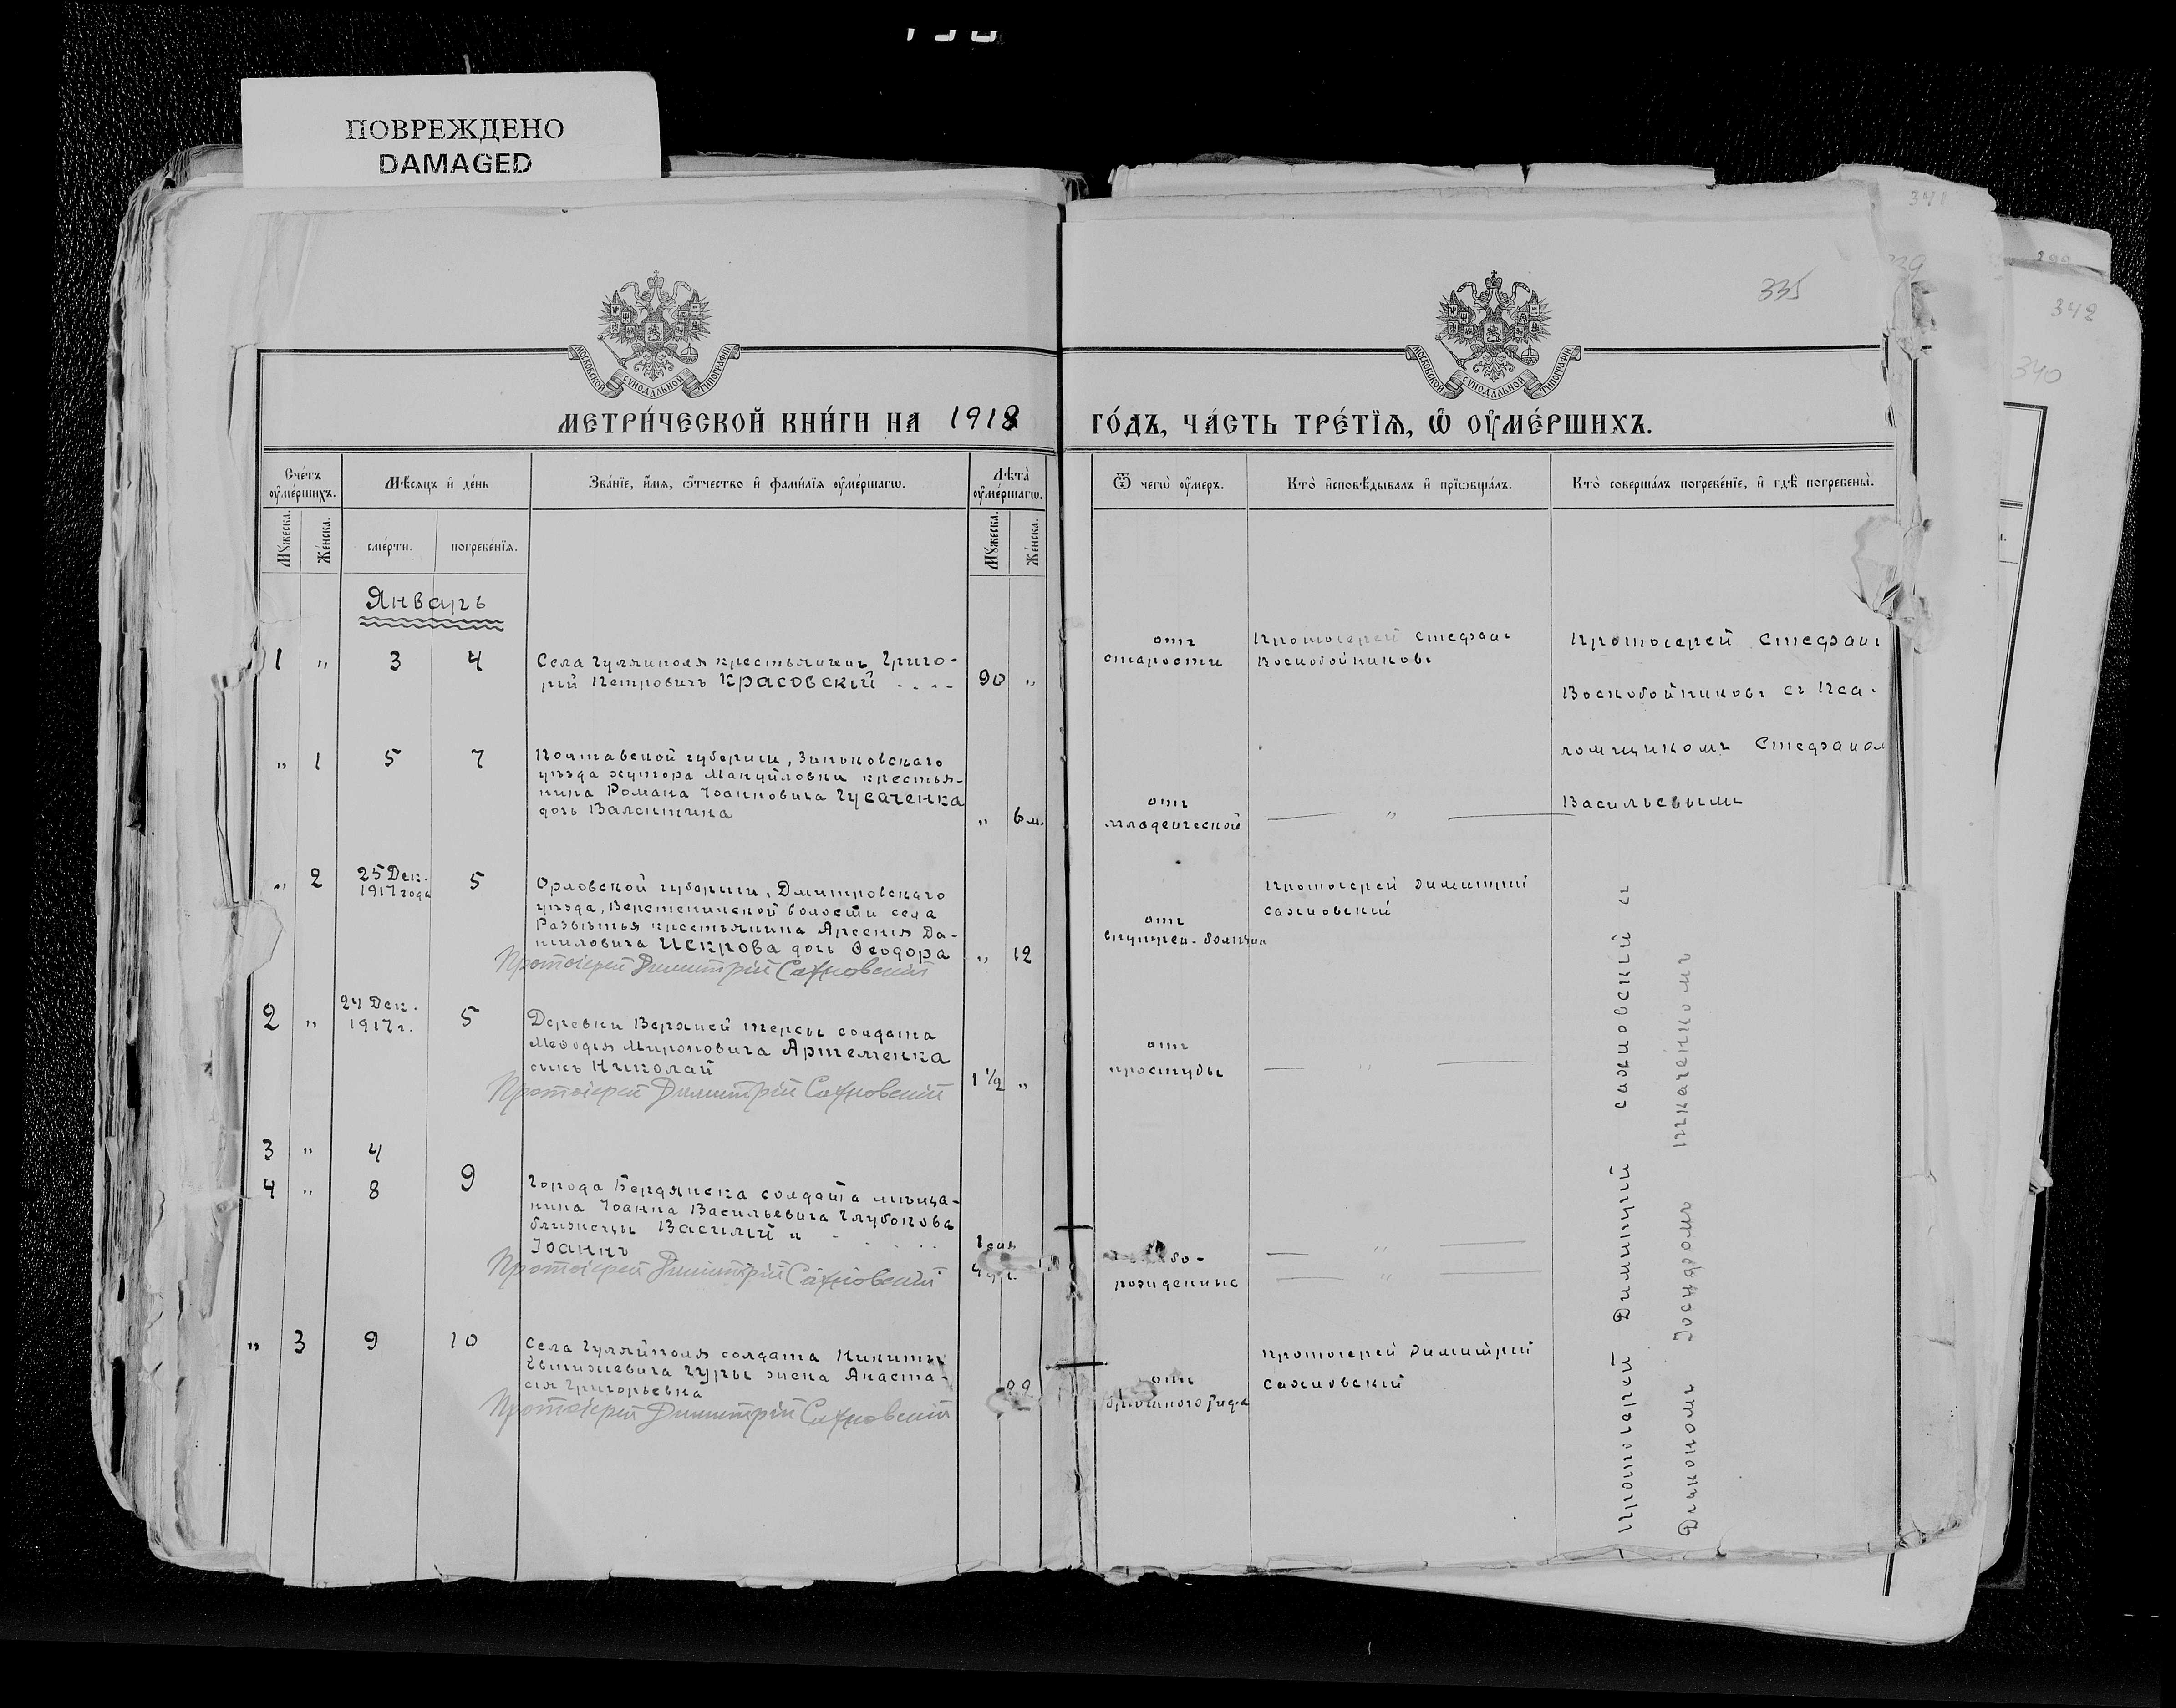 ПОВРЕЖДЕНО
DAMAGED
335
341
342
340
МОСКОВСКОЙ СѴНОДАЛЬНОЙ ТИПОГРАФІИ
МОСКОВСКОЙ СѴНОДАЛЬНОЙ ТИПОГРАФІИ
МЕТРИ́ЧЕСКОЙ КНИ́ГИ НА 1918
ГО́ДЪ, ЧА́СТЬ ТРЕ́ТІѦ, Ѡ҆ ОУ҆МЕ́РШИХЪ.
Сче́тъ оу҆ме́ршихъ.
Мꙋ́жеска.
Же́нска.
Мѣ́сяцъ и҆ де́нь
сме́рти.
погребе́нїѧ.
Зва́нїе, и҆́мѧ, ѻ҆́тчество и҆ фами́лїѧ оу҆ме́ршагѡ.
Лѣ́та оу҆ме́ршагѡ.
Мꙋ́жеска.
Же́нска.
Ѿ чегѡ̀ оу҆́меръ.
Кто̀ и҆сповѣ́дывалъ и҆ прїѡбща́лъ.
Кто̀ соверша́лъ погребе́нїе, и҆ гдѣ̀ погребены̀.
Январь
1 " 3 4
Села Гуляйполя крестьянинъ Григо-
рій Петровичъ Красовскій . . . .
90 "
отъ
старости
Протоіерей Стефанъ
Воскобойниковъ
Протоіерей Стефанъ
Воскобойниковъ съ Пса-
ломщикомъ Стефаном
Васильевымъ
" 1 5 7
Полтавской губерніи, Зиньковскаго
уѣзда хутора Мануйловки крестья-
нина Романа Іоанновича Гусаченка
дочь Валентина
" 6 м.
отъ
младенческой
"
" 2 25 Дек. 1917 года 5
Орловской губерніи, Дмитровскаго
уѣзда, Верстенинской волости села
Развѣтья крестьянина Арсенія Да-
ниловича Искрова дочь Ѳеодора
" 12
Протоіерей Димитрій Сахновскій
отъ
внутрен. болѣзни
Протоіерей Димитрій
Сахновскій
2 " 24 Дек. 1917 г. 5
Деревни Верхней Терсы солдата
Меѳодія Мироновича Артеменка
сынъ Николай
1 1/2 "
Протоіерей Димитрій Сахновскій
отъ
простуды
"
3 " 4
4 " 8 9
Города Бердянска солдата мѣща-
нина Іоанна Васильевича Глубокова
близнецы Василій и
Іоаннъ
Протоіерей Димитрій Сахновскій
рожденные
"
"
" 3 9 10
Села Гуляйполя солдата Никиты
Евтихіевича Гуры жена Анаста-
сія Григорьевна
Протоіерей Димитрій Сахновскій
отъ
Протоіерей Димитрій
Сахновскій
Протоіерей Димитрій Сахновскій съ
Діакономъ Іосифомъ Ткаченкомъ